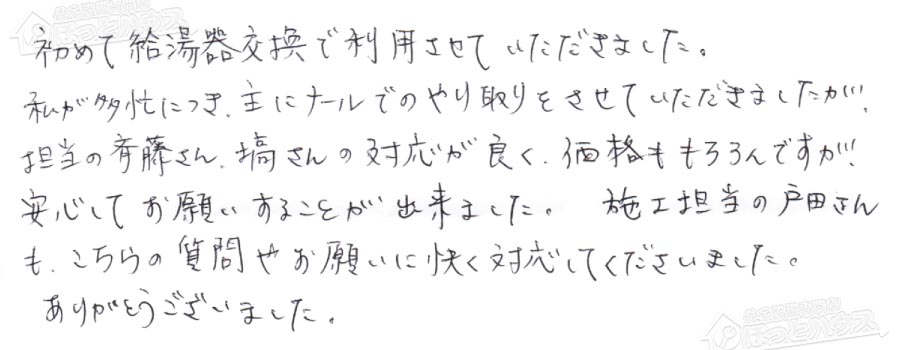 初めて給湯器交換で利用させていただきました。
私が多忙につき、主にメールでのやり取りをさせていただきましたが、
担当の斉藤さん、塙さんの対応が良く、価格ももちろんですが、
安心してお願いすることが出来ました。 施工担当の戸田さん
も、こちらの質問やお願いに快く対応してくださいました。
ありがとうございました。
ほっとハウス
ほっとハウス